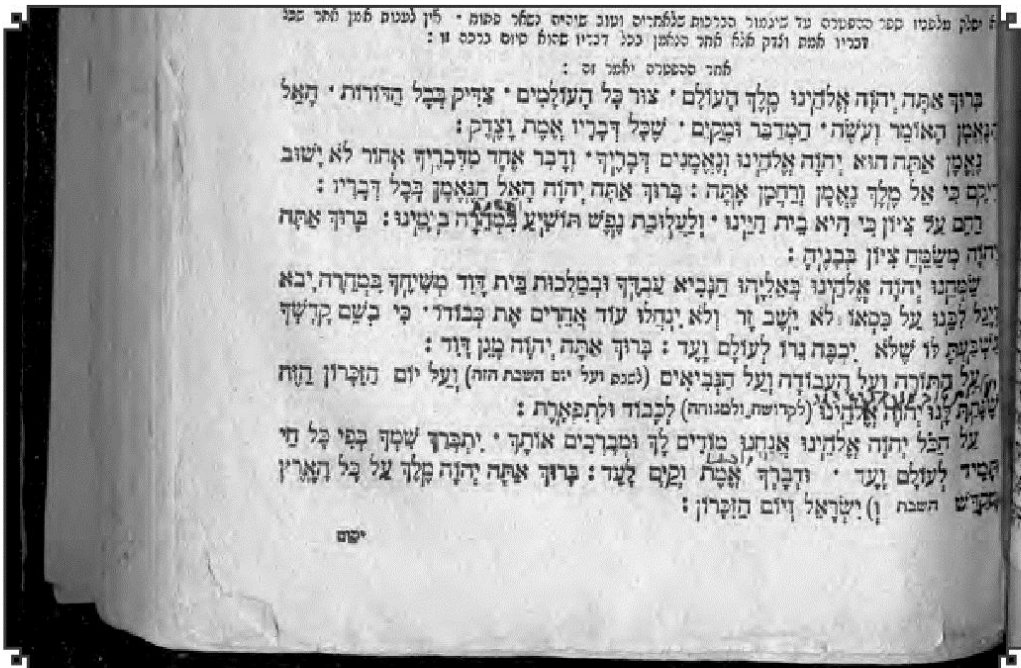 יסלק מלפניו ספר ההפטרה עד שיגמור הברכות שלאחריה וטוב שיהיה נשאר פתוח · אין לענות אמן אחר שכל
דבריו אמת וצדק אלא אחר הנאמן בכל דבריו שהוא סיום ברכה זו :
אחר ההפטרה יאמר זה :
בָּרוּךְ אַתָּה יְהוָֹה אֱלֹהֵינוּ מֶלֶךְ הָעוֹלָם · צוּר כָּל הָעוֹלָמִים · צַדִּיק בְּכָל הַדּוֹרוֹת · הָאֵל
הַנֶּאֱמָן הָאוֹמֵר וְעֹשֶׂה · הַמְדַבֵּר וּמְקַיֵּם · שֶׁכָּל דְּבָרָיו אֱמֶת וָצֶדֶק :
נֶאֱמָן אַתָּה הוּא יְהוָֹה אֱלֹהֵינוּ וְנֶאֱמָנִים דְּבָרֶיךָ · וְדָבָר אֶחָד מִדְּבָרֶיךָ אָחוֹר לֹא יָשׁוּב
רֵיקָם כִּי אֵל מֶלֶךְ נֶאֱמָן וְרַחֲמָן אָתָּה : בָּרוּךְ אַתָּה יְהוָֹה הָאֵל הַנֶּאֱמָן בְּכָל דְּבָרָיו :
רַחֵם עַל צִיּוֹן כִּי הִיא בֵית חַיֵּינוּ · וְלַעֲלוּבַת נֶפֶשׁ תּוֹשִׁיעַ בִּמְהֵרָה בְיָמֵינוּ : בָּרוּךְ אַתָּה
יְהוָֹה מְשַׂמֵּחַ צִיּוֹן בְּבָנֶיהָ :
שַׂמְּחֵנוּ יְהוָֹה אֱלֹהֵינוּ בְּאֵלִיָּהוּ הַנָּבִיא עַבְדֶּךָ וּבְמַלְכוּת בֵּית דָּוִד מְשִׁיחֶךָ בִּמְהֵרָה יָבֹא
וְיָגֵל לִבֵּנוּ עַל כִּסְאוֹ לֹא יֵשֵׁב זָר וְלֹא יִנְחֲלוּ עוֹד אֲחֵרִים אֶת כְּבוֹדוֹ · כִּי בְשֵׁם קָדְשְׁךָ
נִשְׁבַּעְתָּ לּוֹ שֶׁלֹּא יִכְבֶּה נֵרוֹ לְעוֹלָם וָעֶד : בָּרוּךְ אַתָּה יְהוָֹה מָגֵן דָּוִד :
עַל הַתּוֹרָה וְעַל הָעֲבוֹדָה וְעַל הַנְּבִיאִים (לשבת ועל יום השבת הזה) וְעַל יוֹם הַזִּכָּרוֹן הַזֶּה
שֶׁנָּתַתָּ לָּנוּ יְהוָֹה אֱלֹהֵינוּ (לקדושה ולמנוחה) לְכָבוֹד וּלְתִפְאָרֶת :
עַל הַכֹּל יְהוָֹה אֱלֹהֵינוּ אֲנַחְנוּ מוֹדִים לָךְ וּמְבָרְכִים אוֹתָךְ · יִתְבָּרַךְ שִׁמְךָ בְּפִי כָּל חַי
תָּמִיד לְעוֹלָם וָעֶד · וּדְבָרְךָ אֱמֶת וְקַיָּם לָעַד : בָּרוּךְ אַתָּה יְהוָֹה מֶלֶךְ עַל כָּל הָאָרֶץ
מְקַדֵּשׁ השבת וְ) יִשְׂרָאֵל וְיוֹם הַזִּכָּרוֹן :